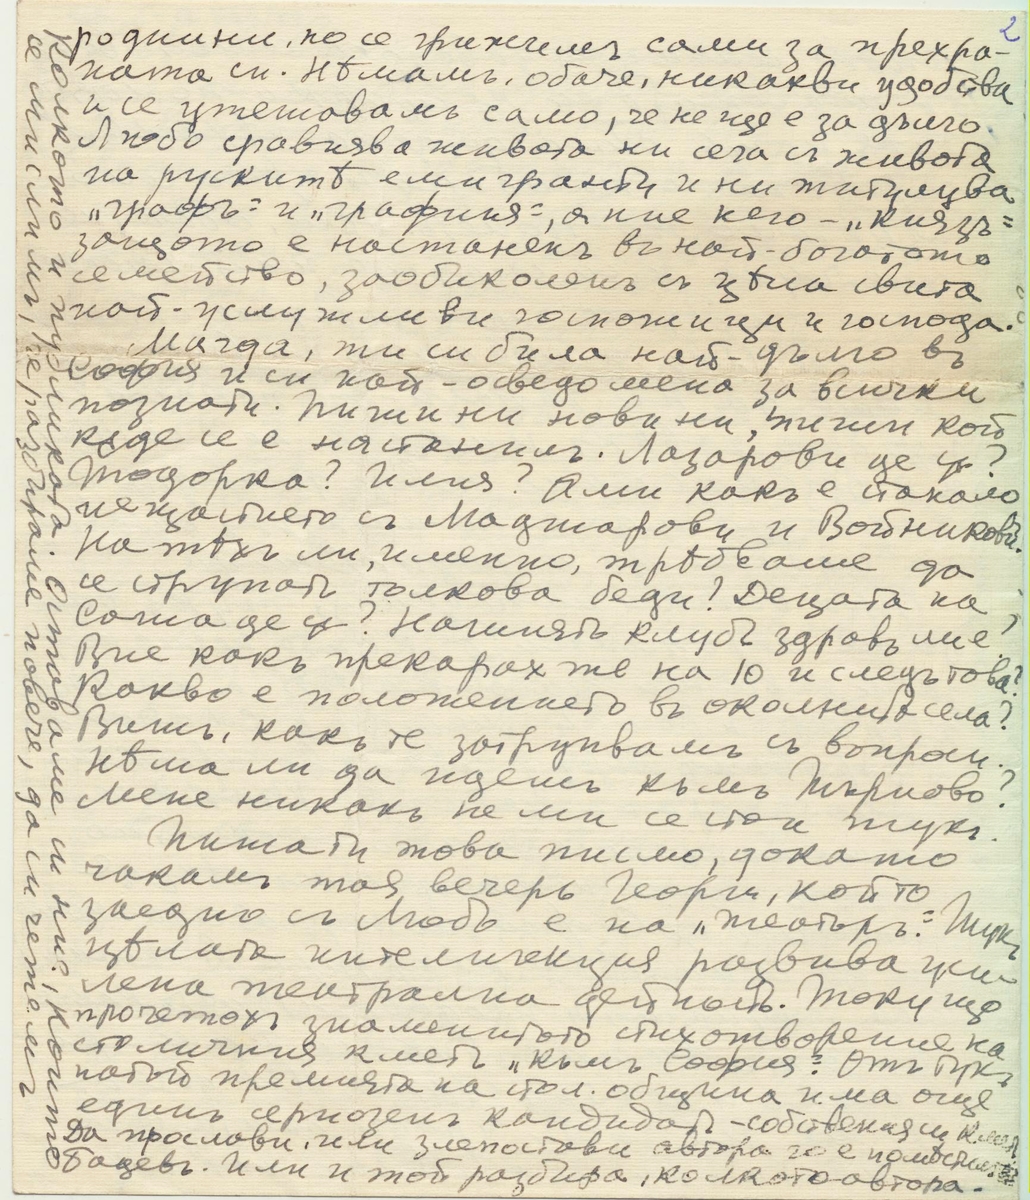 2
роднини, но се грижимъ сами за прехра-
ната си. Нѣмамъ, обаче, никакви удобства
и се утешавамъ само, че не ще е за дълго.
Любо сравнява живота ни сега съ живота
на рускитѣ емигранти и ни титулува
„графъ" и „графиня", а ние него – „князъ"
защото е настаненъ въ най-богатото
семейство, заобиколенъ съ цѣла свита
най-услужливи госпожици и господа.
Магда, ти си била най-дълго въ
София и си най-осведомена за всички
познати. Пиши ни новини, пиши кой
кѫде се е настанилъ. Лазарови де ѫ?
Тодорка? Илия? Ами какъ е станало
нещастието съ Маджарови и Войникови.
На тѣхъ ли, именно, трѣбваше да
се струпатъ толкова беди! Децата на
Соча де ѫ? Начинятъ клубъ здравъ ли е?
Вие какъ прекарахте на 10 и следъ това?
Какво е положението въ околнитѣ села?
Вишъ, какъ те затрупвамъ съ въпроси.
Нѣма ли да идешъ къмъ Търново?
Мене никакъ не ми се стои тукъ.
Пиша ти това писмо, докато
чакамъ тая вечеръ Георги, който
заедно съ Любо е на „театъръ". Тукъ
цѣлата интелигенция развива уси-
лена театрална дейность. Току що
прочетохъ знаменитото стихотворение на
столичния кметъ „Къмъ София". Отъ тукъ
нататъкъ премията на стол. община има още
единъ сериозенъ кандидатъ – собствения ѝ кметъ.
Да прослави, или злепостави автора го е помѣстилъ
Бадевъ. Или и той разбира, колкото автора –
колкото и публиката. Оставаме си ние, които
се мислимъ, че разбираме повече, да си четемъ